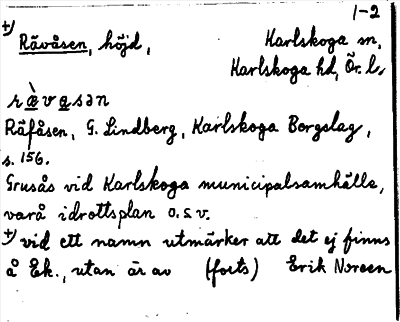 1-2
+) Rävåsen, höjd, Karlskoga sn,
Karlskoga hd, Ör. l.
rævasən
Räfåsen, G. Lindberg, Karlskoga Bergslag,
s. 156.
Grusås vid Karlskoga municipalsamhälle,
varå idrottsplan o.s.v.
+) vid ett namn utmärker att det ej finns
å Ek., utan är av (forts) Erik Noreen